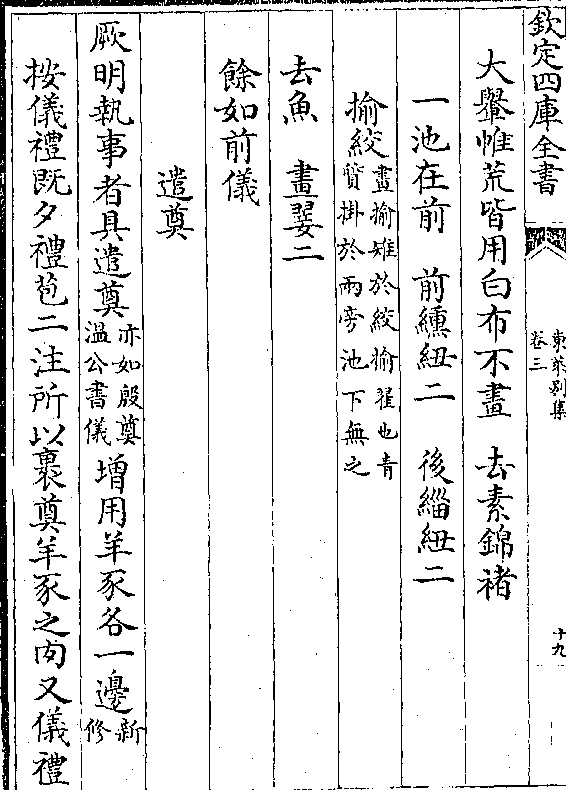 欽定四庫全書
東萊別集
卷三
十九
大轝帷荒皆用白布不畫　去素錦褚
一池在前　前纁紐二　後緇紐二
揄絞畫揄雉於絞揄翟也青
質掛於兩旁池下無之
去魚　畫翣二
餘如前儀
遣奠
厥明執事者具遣奠亦如殷奠
溫公書儀增用羊豕各一邊新
修
按儀禮既夕禮苞二注所以裹奠羊豕之肉又儀禮